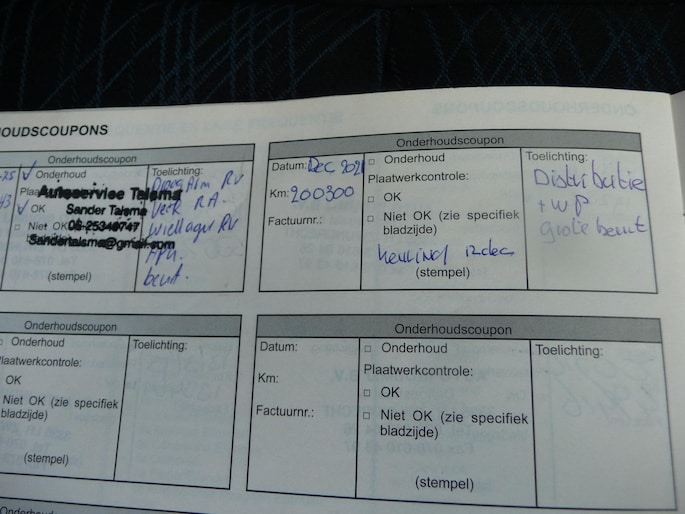 HOUDSCOUPONS
Onderhoudscoupon
-25 ✓ Onderhoud
OK
Niet OK
Autoservice Talsma
Sander Talsma
06-25349747
Sandertalsma@gmail.com
(stempel)
Toelichting:
Draag Arm RV
Veer R.A.
wiellager RV
APK.
beurt.
Onderhoudscoupon
Datum: Dec 2021
Km: 200300
Factuurnr.:
Onderhoud
Plaatwerkcontrole:
OK
Niet OK (zie specifiek
bladzijde)
(stempel)
Toelichting:
Distributie
+ wp
grote beurt
Onderhoudscoupon
Onderhoud
Plaatwerkcontrole:
OK
Niet OK (zie specifiek
bladzijde)
(stempel)
Toelichting:
Onderhoudscoupon
Datum:
Km:
Factuurnr.:
Onderhoud
Plaatwerkcontrole:
OK
Niet OK (zie specifiek
bladzijde)
(stempel)
Toelichting:
Onderhoudscoupon